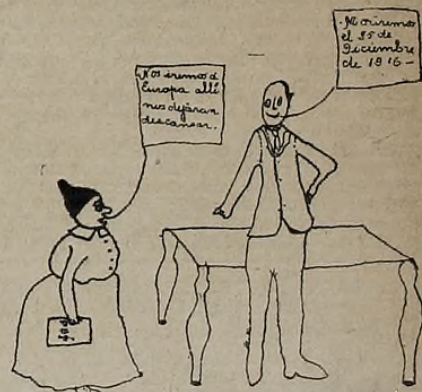 Nos iremos á
Europa allí
nos dejaran
descansar.
-Moriremos
el 25 de
Diciembre
de 1916-